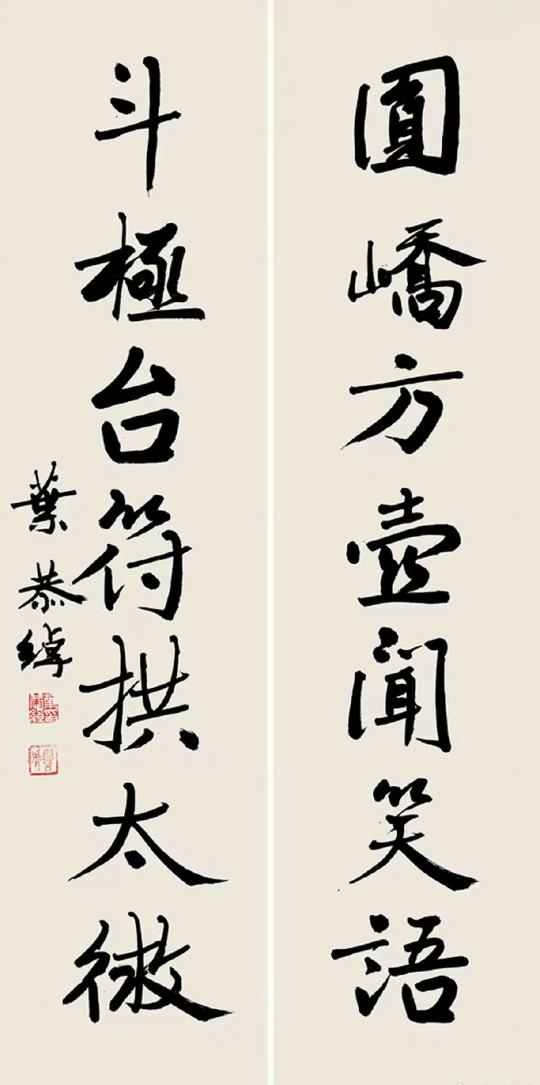 圓嶠方壺聞笑語
斗極台符拱太微
葉恭綽